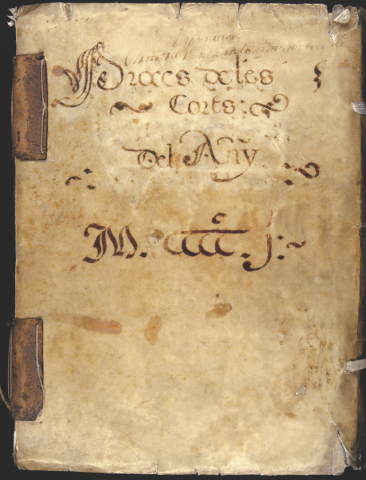 Proces de les
Corts:
del Any
M. cccc. j: